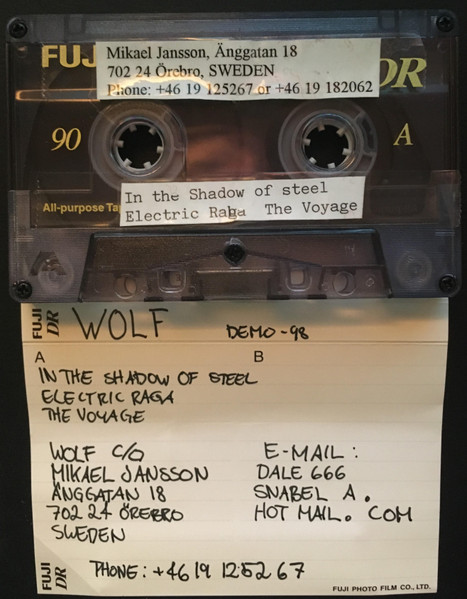 FUJI
Mikael Jansson, Änggatan 18
702 24 Örebro, SWEDEN
Phone: +46 19 125267 or +46 19 182062
DR
90
A
All-purpose Tap
In the Shadow of steel
Electric Raga The Voyage
FUJI DR
WOLF
DEMO-98
A
B
IN THE SHADOW OF STEEL
ELECTRIC RAGA
THE VOYAGE
WOLF C/O
MIKAEL JANSSON
ÄNGGATAN 18
702 24 ÖREBRO
SWEDEN
E-MAIL:
DALE 666
SNABEL A.
HOT MAIL. COM
PHONE: +46 19 12 52 67
FUJI DR
FUJI PHOTO FILM CO., LTD.